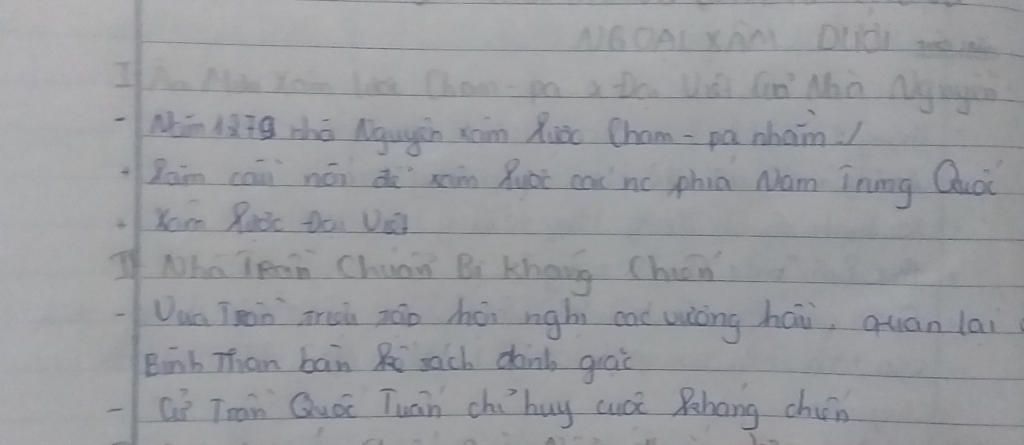 NGOẠI XÂM DƯỚI
I Âm Mưu Xâm lược Cham-pa & Đại Việt của Nhà Nguyên
- Năm 1279 nhà Nguyên xâm lược Cham-pa nhằm:
+ Làm cầu nối để xâm lược các nc phía Nam Trung Quốc
+ Xâm lược Đại Việt
II Nhà Trần Chuẩn Bị Kháng Chiến
- Vua Trần triệu tập hội nghị các vương hầu, quan lại
Bình Than bàn kế sách đánh giặc
- Cử Trần Quốc Tuấn chỉ huy cuộc kháng chiến